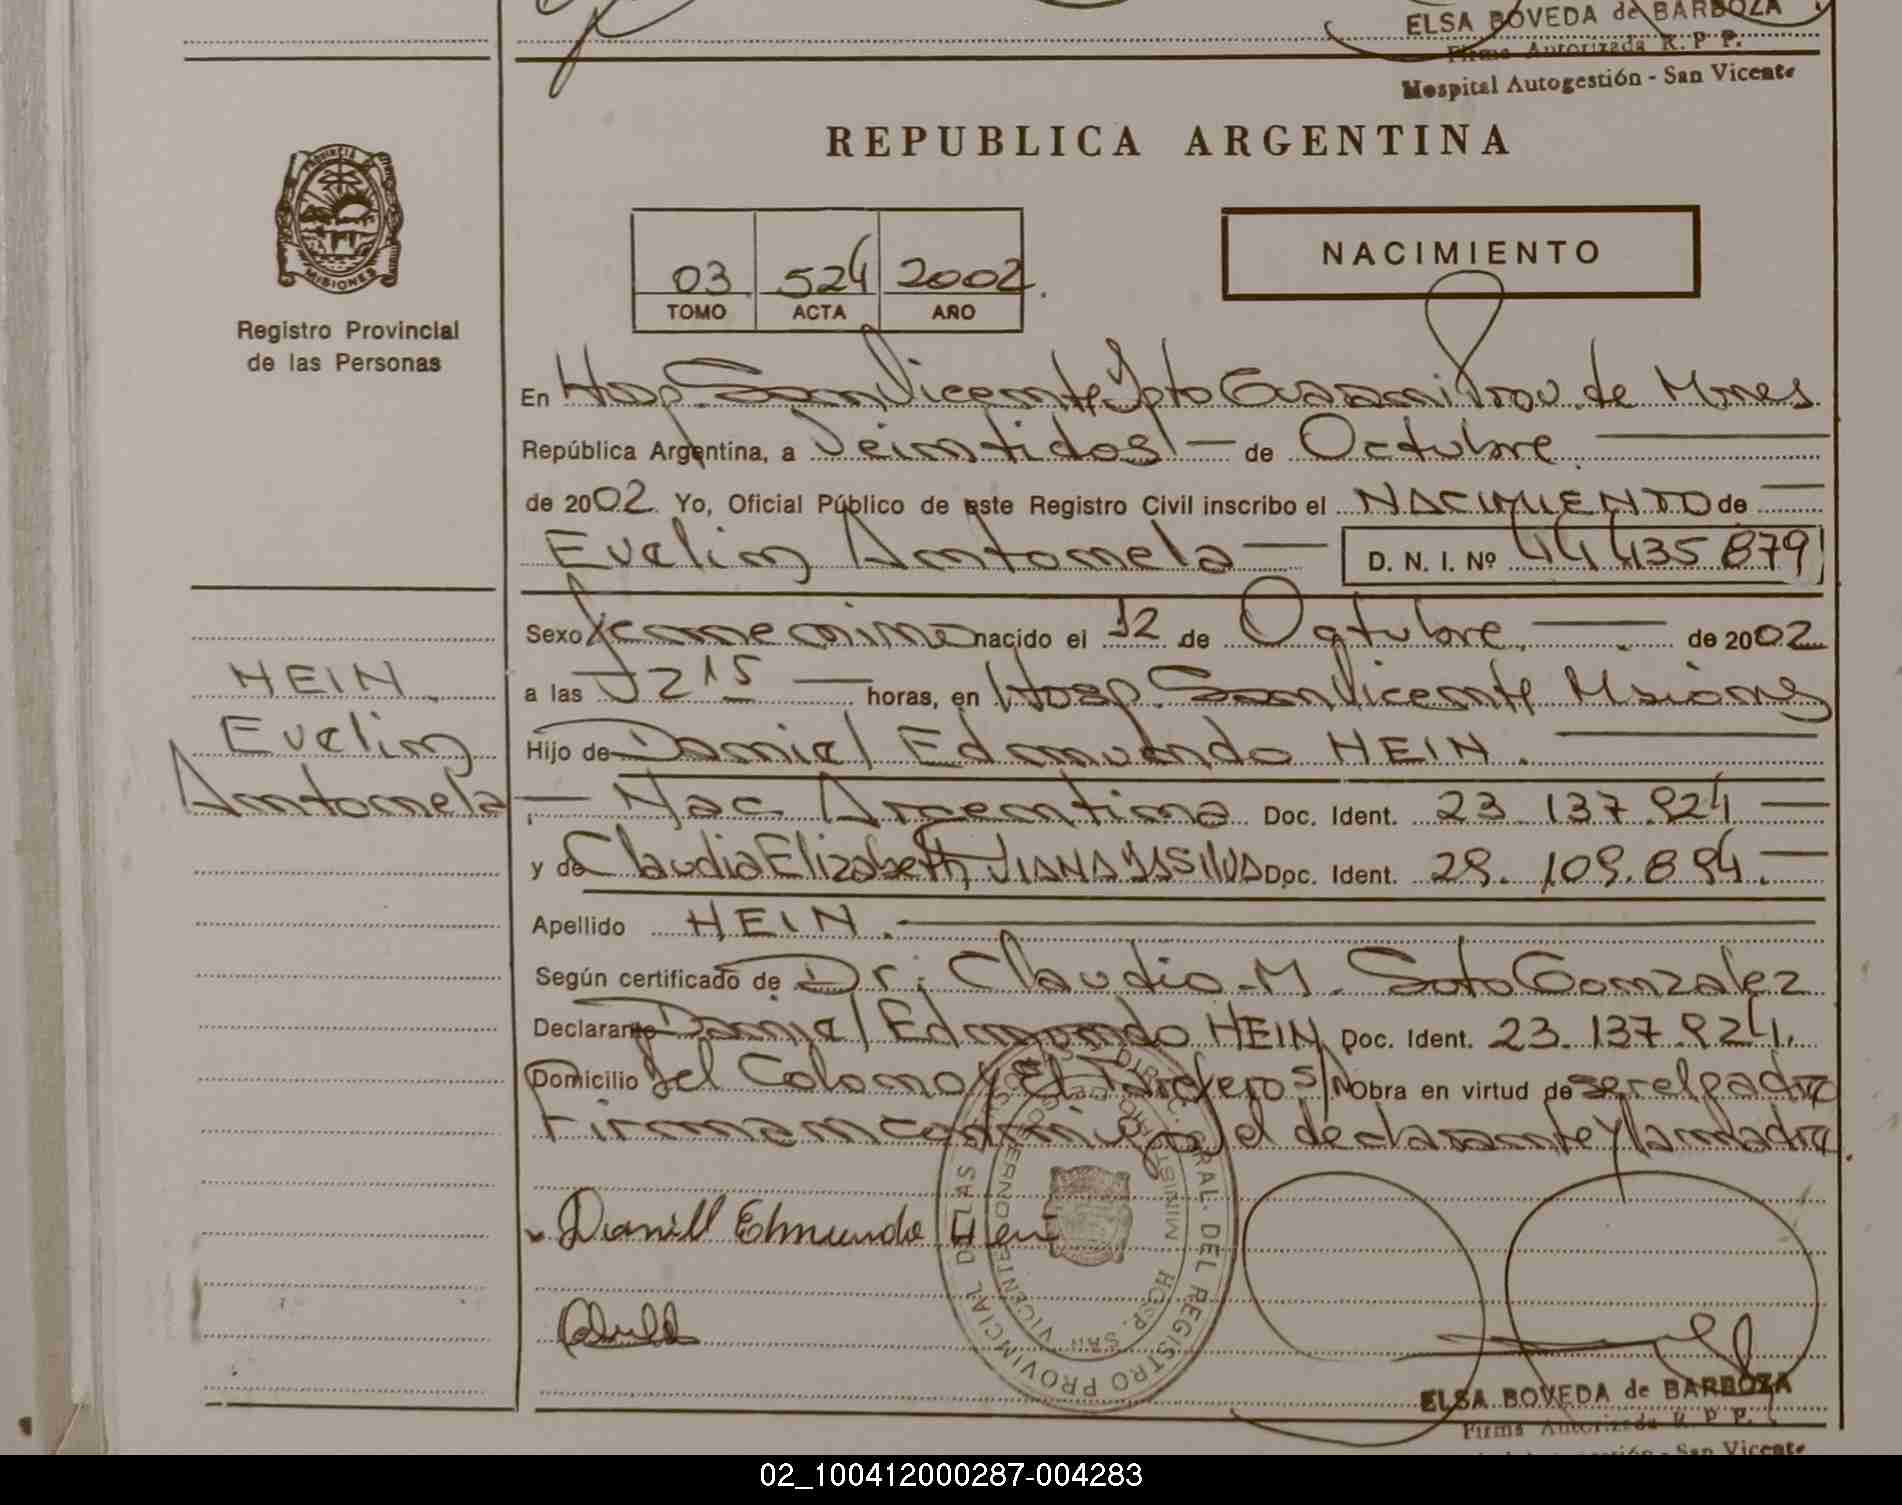 ELSA BOVEDA de BARBOZA
Firma Autorizada R. P P.
Hospital Autogestión - San Vicente
REPUBLICA ARGENTINA
PROVINCIA DE
MISIONES
Registro Provincial
de las Personas
03 524 2002.
TOMO ACTA AÑO
NACIMIENTO
En Hosp. San Vicente Dpto Guarani Prov. de Mnes
República Argentina, a Veintidos — de Octubre.
de 2002. Yo, Oficial Público de este Registro Civil inscribo el NACIMIENTO de
Evelin Antonela — D. N. I. Nº 44 435 879
Sexo femenino nacido el 12 de Octubre. — de 2002
a las 12 15 — horas, en Hosp. San Vicente Msiones
Hijo de Daniel Edmundo HEIN.
— Nac Argentina Doc. Ident. 23.137.924 —
y de Claudia Elizabeth VIANA DA SILVA Doc. Ident. 29.109.894. —
Apellido HEIN.
Según certificado de Dr. Claudio M. Soto Gonzalez
Declarante Daniel Edmundo HEIN Doc. Ident. 23.137.924.
Domicilio del Colono y El Tarefero S/N Obra en virtud de ser el padre
Firman conmigo el declarante y la madre.
HEIN.
Evelin
Antonela
Daniel Edmundo Hein
DIREC. GRAL. DEL REGISTRO PROVINCIAL DE LAS
HOSP. SAN VICENTE
ELSA BOVEDA de BARBOZA
Firma Autorizada R. P P.
San Vicente
02_100412000287-004283